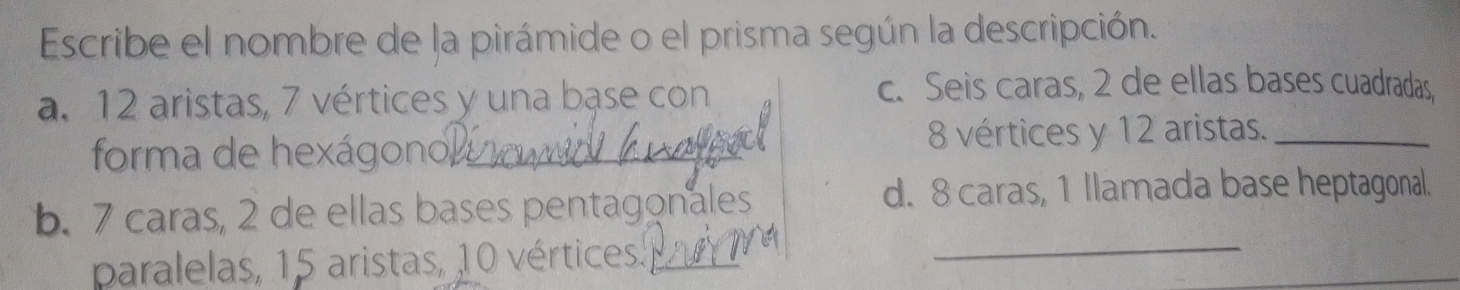 Escribe el nombre de la pirámide o el prisma según la descripción.
a. 12 aristas, 7 vértices y una base con
forma de hexágono. Piramide
b. 7 caras, 2 de ellas bases pentagonales
paralelas, 15 aristas, 10 vértices.
c. Seis caras, 2 de ellas bases cuadradas,
8 vértices y 12 aristas.
d. 8 caras, 1 llamada base heptagonal.